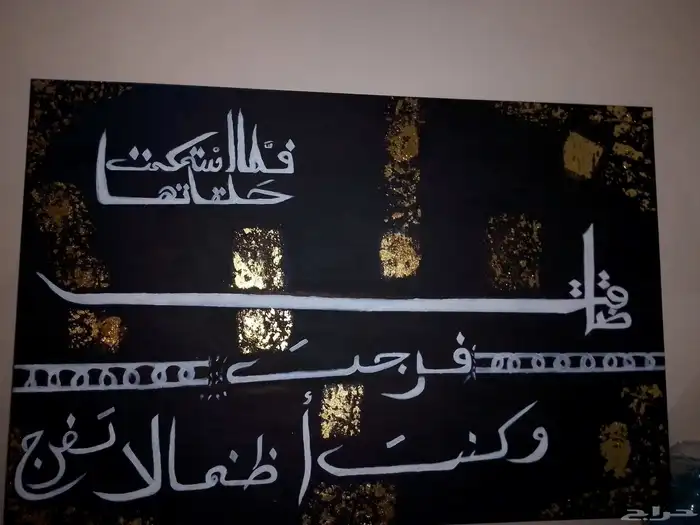 فلمَّا اسْتحكمت
حَلقاتها
ضاقت
فرجَت
وكنتَ أظنها لا تَفرج
حراج